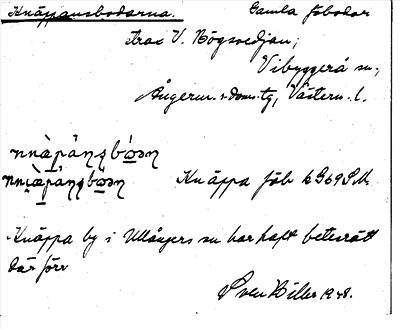 Knäppansbodarna. Gamla fäbodar
trax V. Högsvedjan;
Vibyggerå sn.,
Ångerm. s. doms. tg, Västern. l.
Knäppa fäb k G69 SM
Knäppa by i Ullångers sn har haft betesrätt
där förr
Sven Biller 1948.